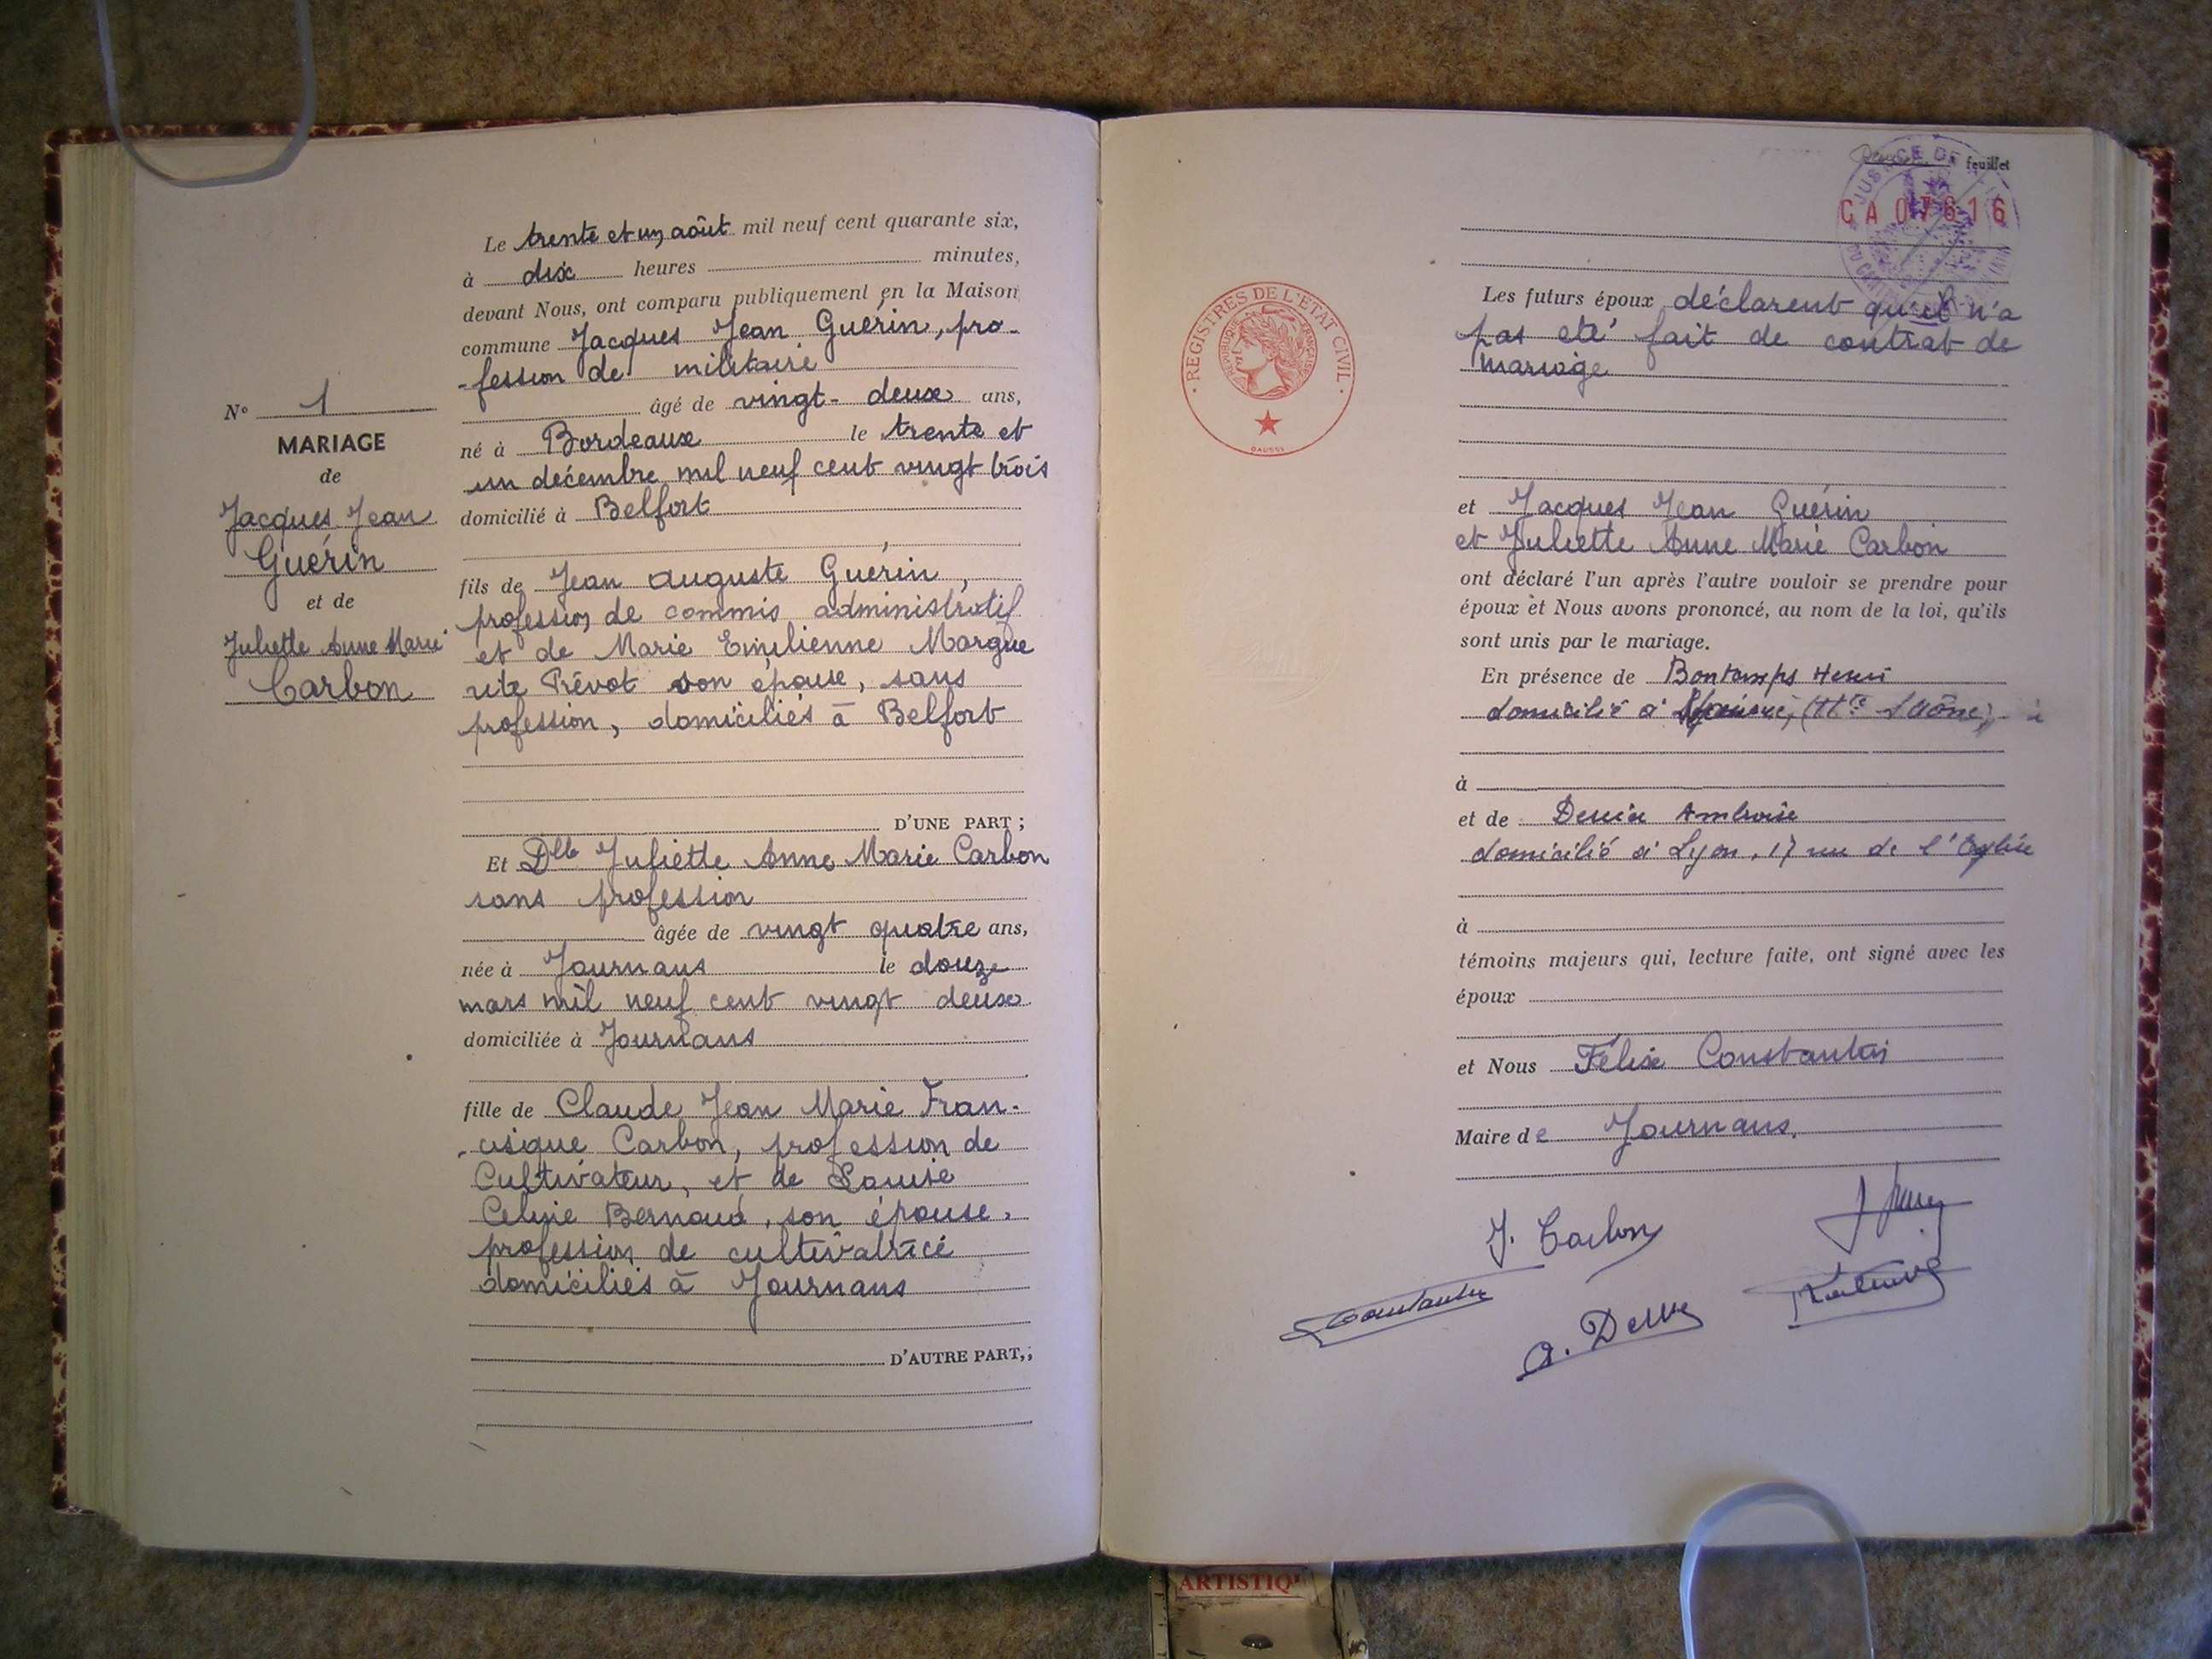 N° 1
MARIAGE
de
Jacques Jean
Guérin
et de
Juliette Anne Marie
Carbon
Le trente et un août mil neuf cent quarante six,
à dix heures minutes,
devant Nous, ont comparu publiquement en la Maison
commune Jacques Jean Guérin, pro-
-fession de militaire
âgé de vingt-deux ans,
né à Bordeaux le trente et
un décembre mil neuf cent vingt trois
domicilié à Belfort
fils de Jean Auguste Guérin,
profession de commis administratif
et de Marie Emilienne Margue
rite Prévot son épouse, sans
profession, domiciliés à Belfort
D'UNE PART ;
Et Dlle Juliette Anne Marie Carbon
sans profession
âgée de vingt quatre ans,
née à Journans le douze
mars mil neuf cent vingt deux
domiciliée à Journans
fille de Claude Jean Marie Fran-
-cisque Carbon, profession de
Cultivateur, et de Louise
Celine Bernoud, son épouse,
profession de cultivatrice
domiciliés à Journans
D'AUTRE PART,;
feuillet
CA 07616
REGISTRES DE L'ETAT CIVIL
Les futurs époux déclarent qu'il n'a
pas été fait de contrat de
mariage
et Jacques Jean Guérin
et Juliette Anne Marie Carbon
ont déclaré l'un après l'autre vouloir se prendre pour
époux et Nous avons prononcé, au nom de la loi, qu'ils
sont unis par le mariage.
En présence de Bontemps Henri
domicilié à (Hte Saône)
à
et de Ambroise
domicilié à Lyon, 17 rue de l'Eglise
à
témoins majeurs qui, lecture faite, ont signé avec les
époux
et Nous Félix Constantin
Maire de Journans.
J. Carbon
Constantin
ARTISTIQ